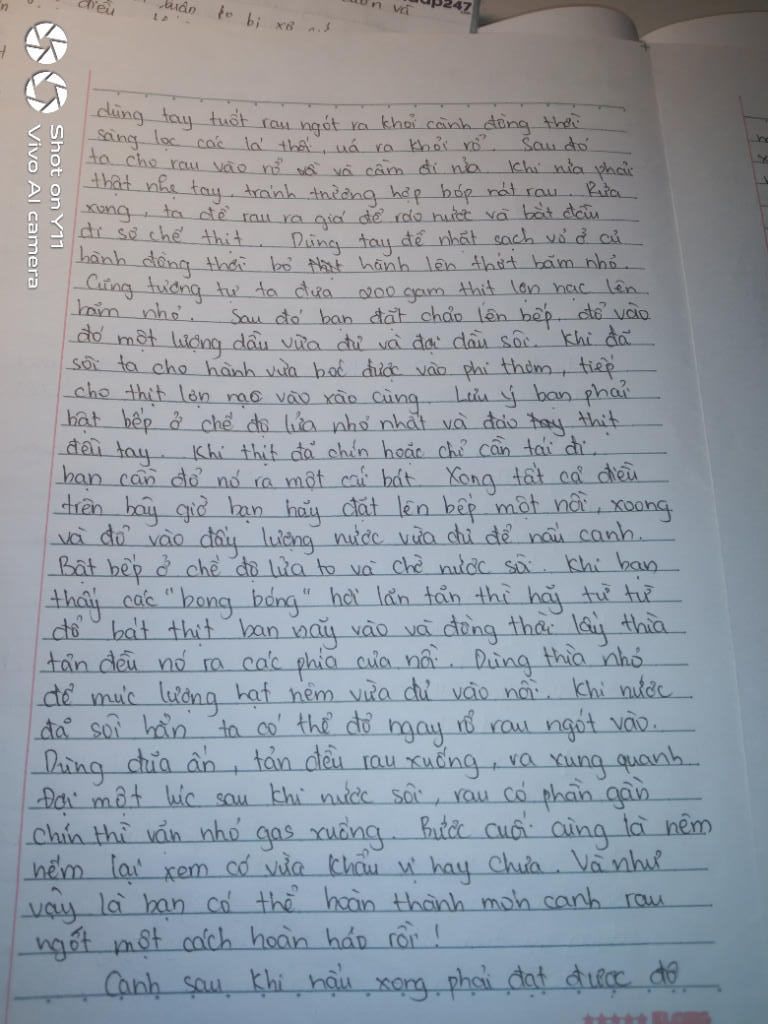 điều
bị xô
247
dùng tay tuốt rau ngót ra khỏi cành đồng thời
sàng lọc các lá thối, uá ra khỏi rổ. Sau đó
ta cho rau vào rổ và cầm đi rửa. Khi rửa phải
thật nhẹ tay, tránh trường hợp bóp nát rau. Rửa
xong, ta để rau ra giá để ráo nước và bắt đầu
đi sơ chế thịt. Dùng tay để nhặt sạch vỏ ở củ
hành đồng thời bỏ hành lên thớt băm nhỏ.
Cũng tương tự ta đưa 200 gam thịt lợn nạc lên
băm nhỏ. Sau đó bạn đặt chảo lên bếp, đổ vào
đó một lượng dầu vừa đủ và đợi dầu sôi. Khi đã
sôi ta cho hành vừa boć được vào phi thơm, tiếp
cho thịt lợn nạc vào xào cùng. Lưu ý bạn phải
bật bếp ở chế độ lửa nhỏ nhất và đảo thịt
đều tay. Khi thịt đã chín hoặc chỉ cần tái đi
bạn cần đổ nó ra một cái bát. Xong tất cả điều
trên bây giờ bạn hãy đặt lên bếp một nồi, xoong
và đổ vào đấy lượng nước vừa đủ để nấu canh.
Bật bếp ở chế độ lửa to và chờ nước sôi. Khi bạn
thấy các "bong bóng" hơi lăn tăn thì hãy từ từ
đổ bát thịt ban nãy vào và đồng thời lấy thìa
tản đều nó ra các phía của nồi. Dùng thìa nhỏ
để múc lượng hạt nêm vừa đủ vào nồi. Khi nước
đã sôi hẳn ta có thể đổ ngay rổ rau ngót vào.
Dùng đũa ấn, tản đều rau xuống, ra xung quanh
Đợi một lúc sau khi nước sôi, rau có phần gần
chín thì vặn nhỏ gas xuống. Bước cuối cùng là nêm
nếm lại xem có vừa khẩu vị hay chưa. Và như
vậy là bạn có thể hoàn thành món canh rau
ngót một cách hoàn hảo rồi!
Canh sau khi nấu xong phải đạt được độ
Shot on Y11
Vivo AI camera